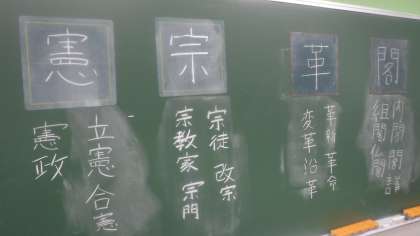 憲
宗
革
閣
立憲 合憲
憲政
宗徒 改宗
宗教家 宗門
革新 革命
変革 沿革
内閣 閣議
組閣